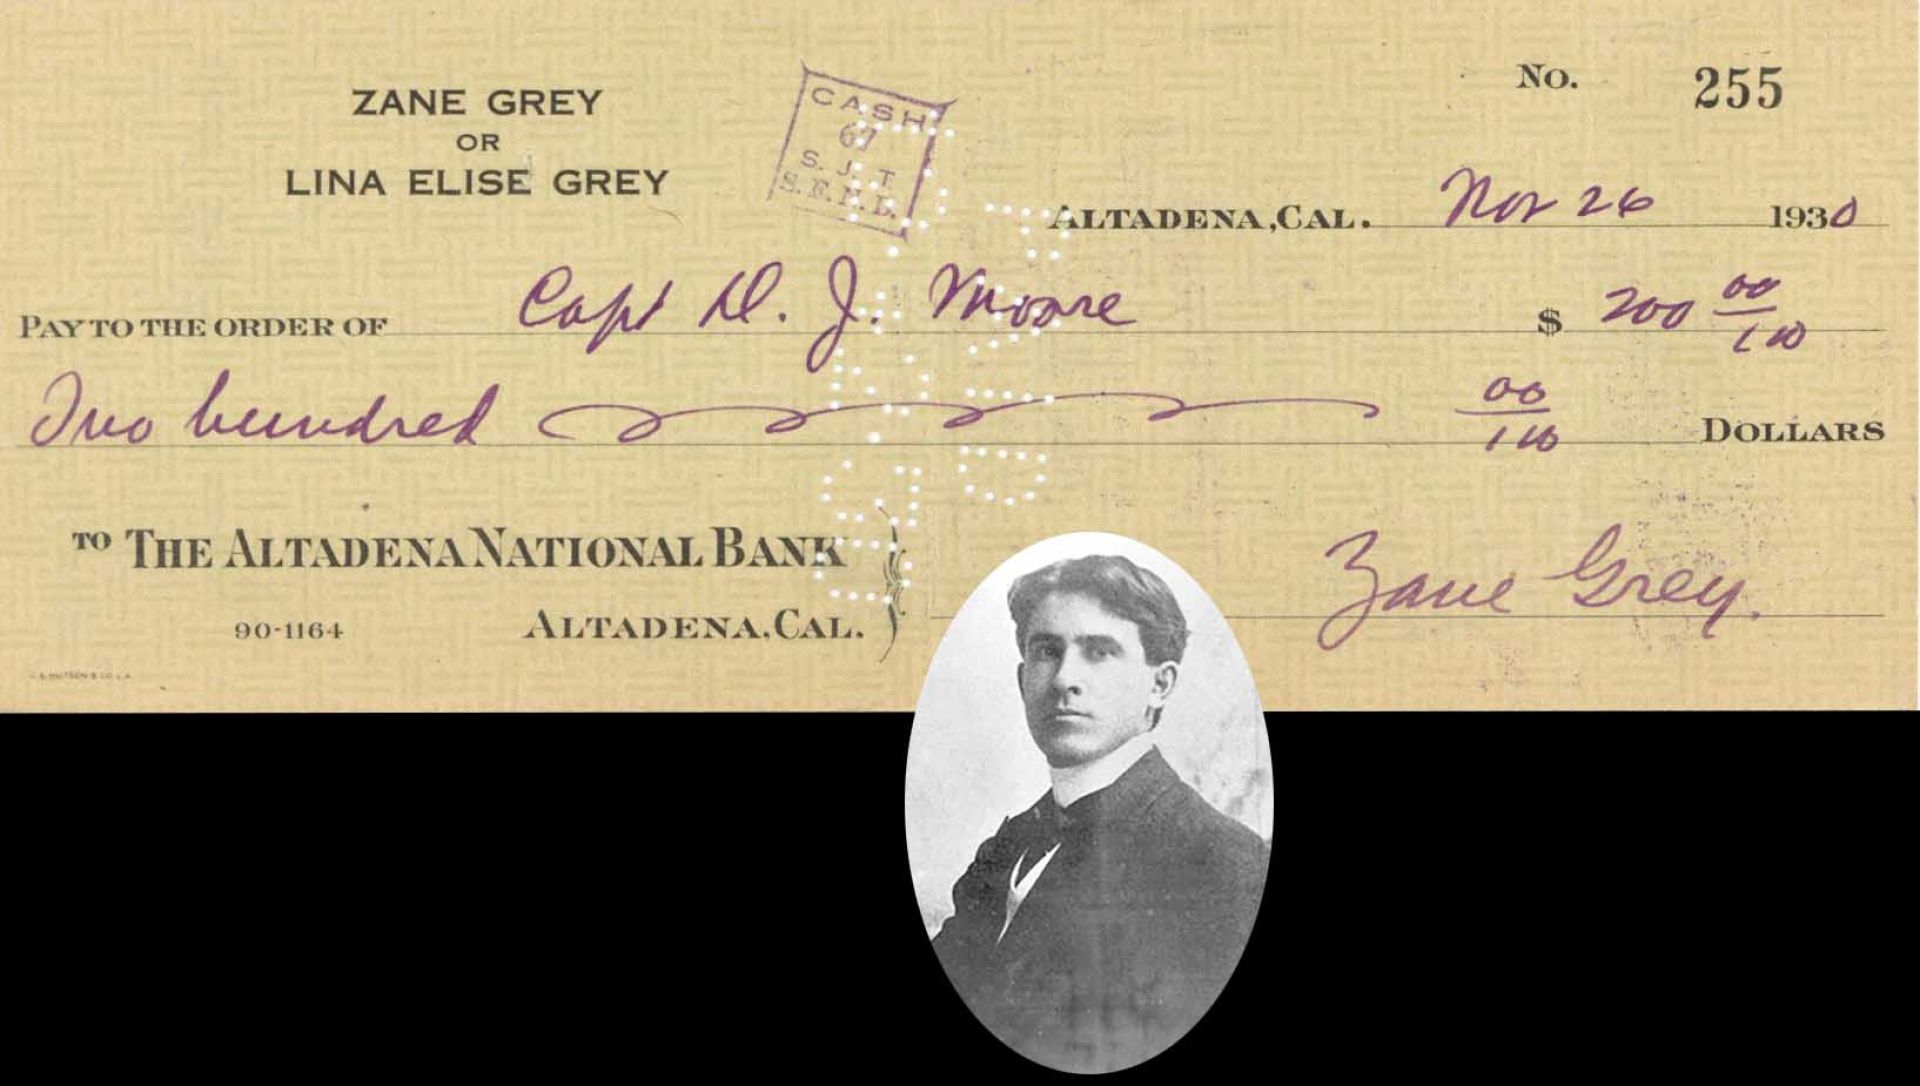 ZANE GREY
OR
LINA ELISE GREY
CASH
67
S. J. T
No. 255
ALTADENA, CAL. Nov 26 1930
PAY TO THE ORDER OF Capt D. J. Moore $ 200 00/100
Two hundred 00/100 DOLLARS
TO THE ALTADENA NATIONAL BANK
90-1164 ALTADENA, CAL.
Zane Grey.